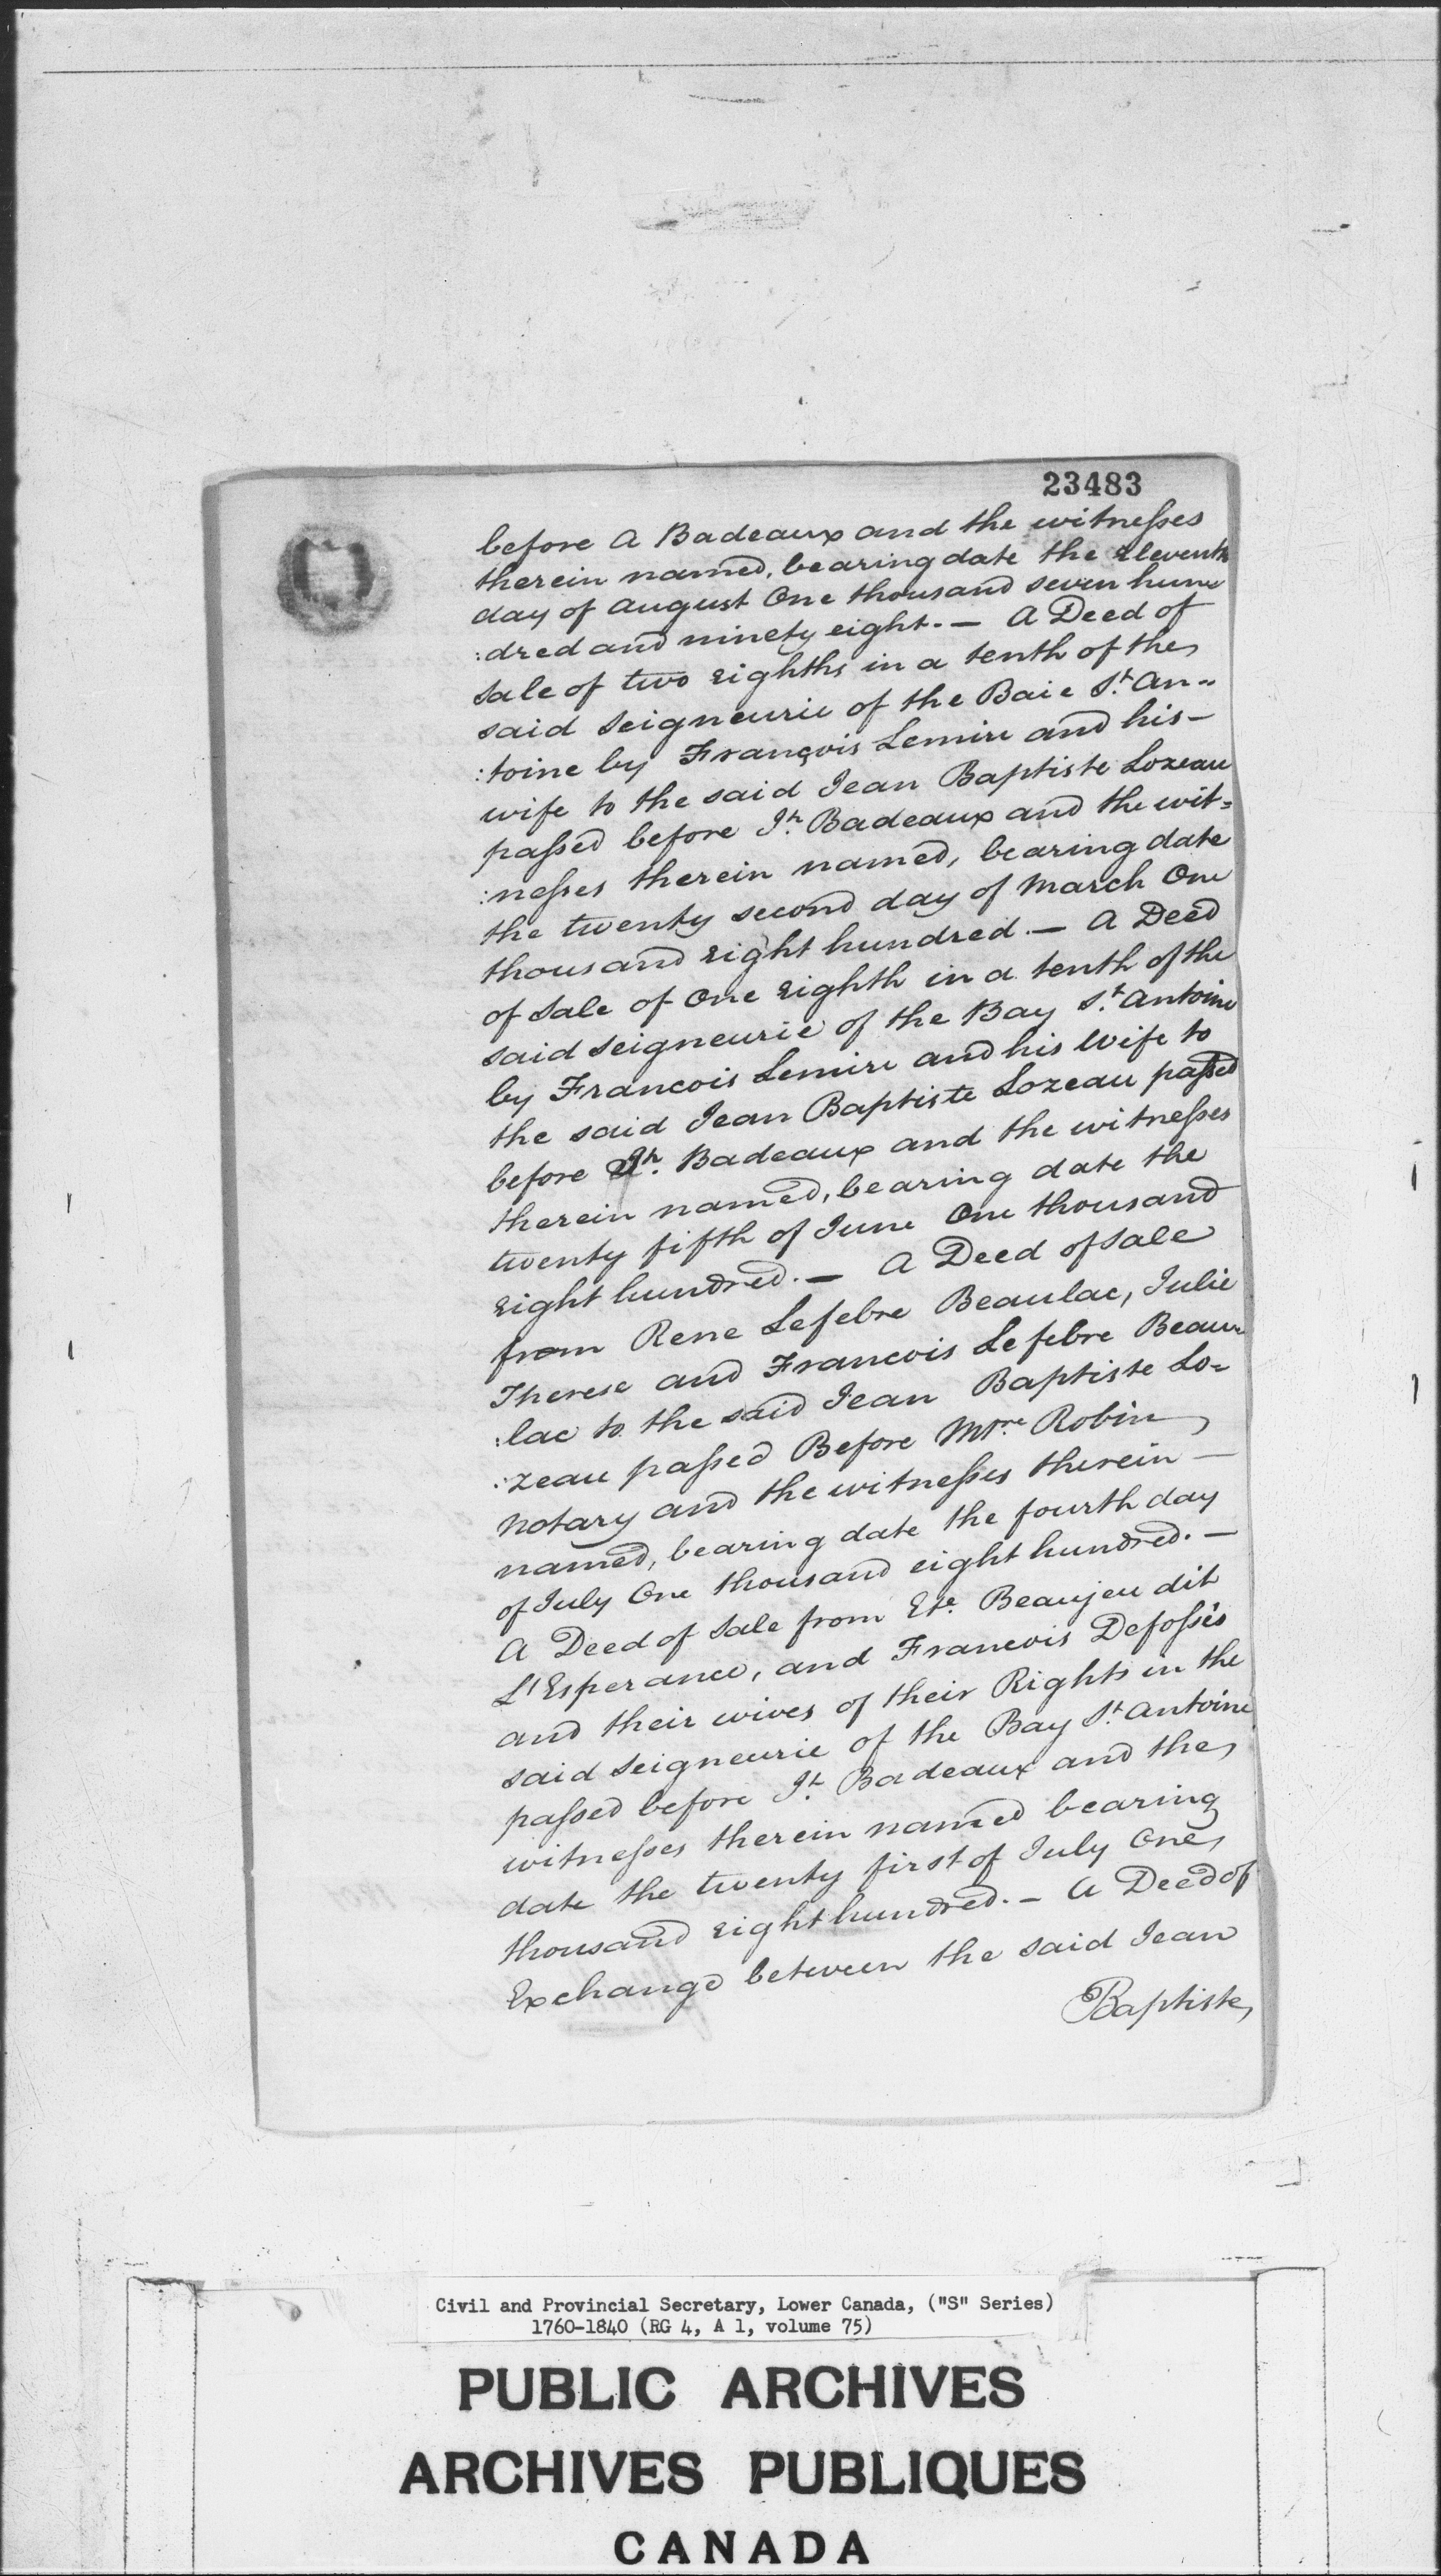 23483
before A Badeaux and the witnesses
therein named, bearing date the Eleventh
day of August One thousand seven hun
:dred and ninety eight. — A Deed of
Sale of two Eighths in a tenth of the
said Seigneurie of the Baie St. An=
:toine by François Lemire and his —
wife to the said Jean Baptiste Lozeau
passed before Jh. Badeaux and the wit=
:nesses therein named, bearing date
the twenty second day of March One
thousand Eight hundred. — A Deed
of Sale of One Eighth in a tenth of the
said Seigneurie of the Bay St. Antoine
by Francois Lemire and his Wife to
the said Jean Baptiste Lozeau passed
before Jh. Badeaux and the witnesses
therein named, bearing date the
twenty fifth of June One thousand
Eight hundred. — A Deed of Sale
from Rene Lefebre Beaulac, Julie
Therese and Francois Lefebre Beau=
:lac to the said Jean Baptiste Lo=
:zeau passed Before Mtre Robin
Notary and the witnesses therein —
named, bearing date the fourth day
of July One thousand eight hundred. —
A Deed of Sale from Ete. Beaujeu dit
L'Esperance, and Francois Defossés
and their wives of their Rights in the
said Seigneurie of the Bay St. Antoine
passed before Jh. Badeaux and the
witnesses therein named bearing
date the twenty first of July One
thousand Eight hundred. — A Deed of
Exchange between the said Jean
Baptiste
Civil and Provincial Secretary, Lower Canada, ("S" Series)
1760-1840 (RG 4, A 1, volume 75)
PUBLIC ARCHIVES
ARCHIVES PUBLIQUES
CANADA